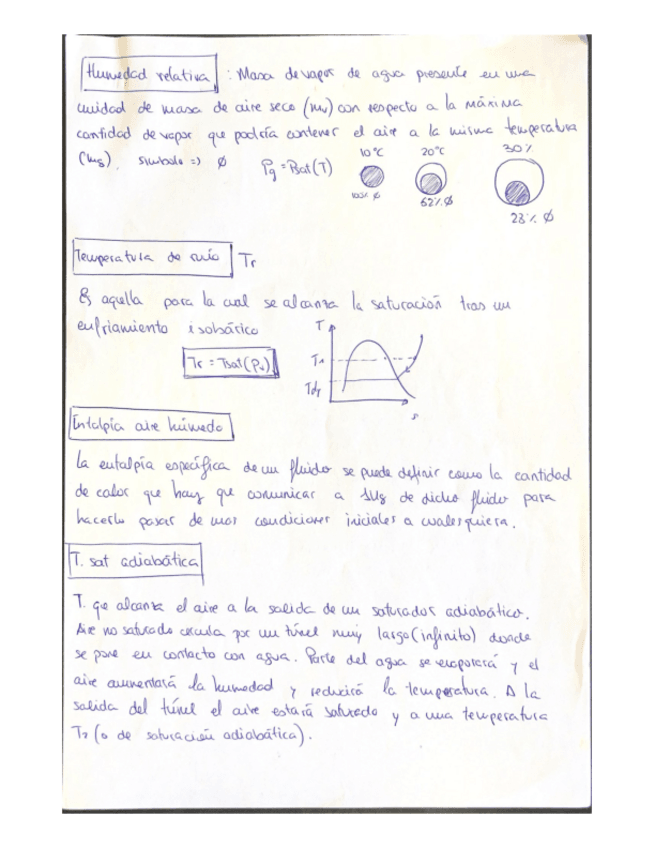 Humedad relativa : Masa de vapor de agua presente en una
unidad de masa de aire seco (mv) con respecto a la máxima
cantidad de vapor que podría contener el aire a la misma temperatura
(mg). simbolo => ϕ Pg = Psat(T) 10°C 20°C 30%
100% ϕ 62% ϕ 28% ϕ
Temperatura de rocío Tr
Es aquella para la cual se alcanza la saturación tras un
enfriamiento isobárico
Tr = Tsat(pv)
T
T1
Tdp
s
Entalpía aire húmedo
La entalpía específica de un fluido se puede definir como la cantidad
de calor que hay que comunicar a 1kg de dicho fluido para
hacerlo pasar de unas condiciones iniciales a cualesquiera.
T. sat adiabática
T. que alcanza el aire a la salida de un saturador adiabático.
Aire no saturado circula por un túnel muy largo (infinito) donde
se pone en contacto con agua. Parte del agua se evaporará y el
aire aumentará la humedad y reducirá la temperatura. A la
salida del túnel el aire estará saturado y a una temperatura
(o de saturación adiabática).